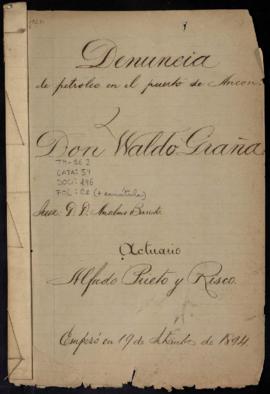 Denuncia
de petroleo en el puerto de Ancon.
Don Waldo Graña
TM-CE 2
CATA: 54
DOC: 196
Juez D. D. Anselmo Barreto
Actuario
Alfredo Prieto y Risco.
Empezó en 19 de Setiembre de 1894